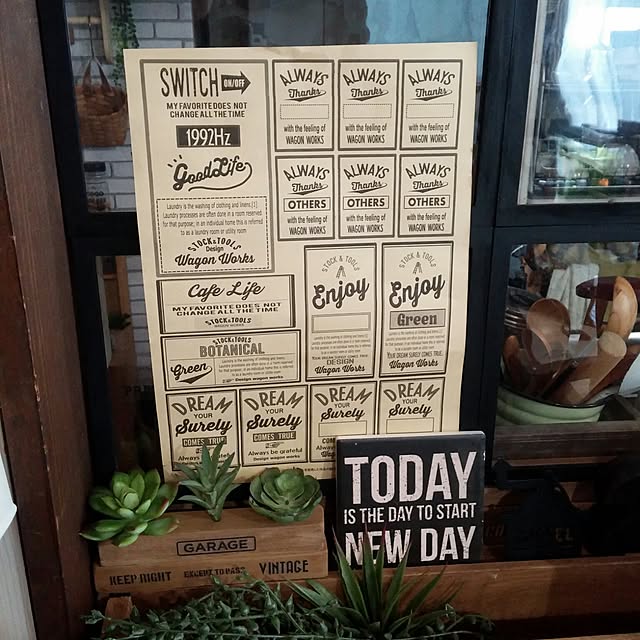 SWITCH ON/OFF
MY FAVORITE DOES NOT
CHANGE ALL THE TIME
1992Hz
Good Life
Laundry is the washing of clothing and linens [1].
Laundry processes are often done in a room reserved
for that purpose; in an individual home this is referred
to as a laundry room or utility room
STOCK&TOOLS
Design
Wagon Works
Cafe Life
MY FAVORITE DOES NOT
CHANGE ALL THE TIME
STOCK&TOOLS
WAGON WORKS
STOCK&TOOLS
BOTANICAL
Green
Design wagon works
ALWAYS
Thanks
with the feeling of
WAGON WORKS
ALWAYS
Thanks
with the feeling of
WAGON WORKS
ALWAYS
Thanks
with the feeling of
WAGON WORKS
ALWAYS
Thanks
OTHERS
with the feeling of
WAGON WORKS
ALWAYS
Thanks
OTHERS
with the feeling of
WAGON WORKS
ALWAYS
Thanks
OTHERS
with the feeling of
WAGON WORKS
STOCK & TOOLS
Enjoy
YOUR DREAM SURELY COMES TRUE.
DESIGN
Wagon Works
STOCK & TOOLS
Enjoy
Green
YOUR DREAM SURELY COMES TRUE.
Wagon Works
DREAM
YOUR
Surely
COMES TRUE
DREAM
YOUR
Surely
COMES TRUE
Always be grateful
Design wagon works
DREAM
YOUR
Surely
DREAM
YOUR
Surely
TODAY
IS THE DAY TO START
NEW DAY
GARAGE
KEEP RIGHT EXCEPT TO PASS VINTAGE